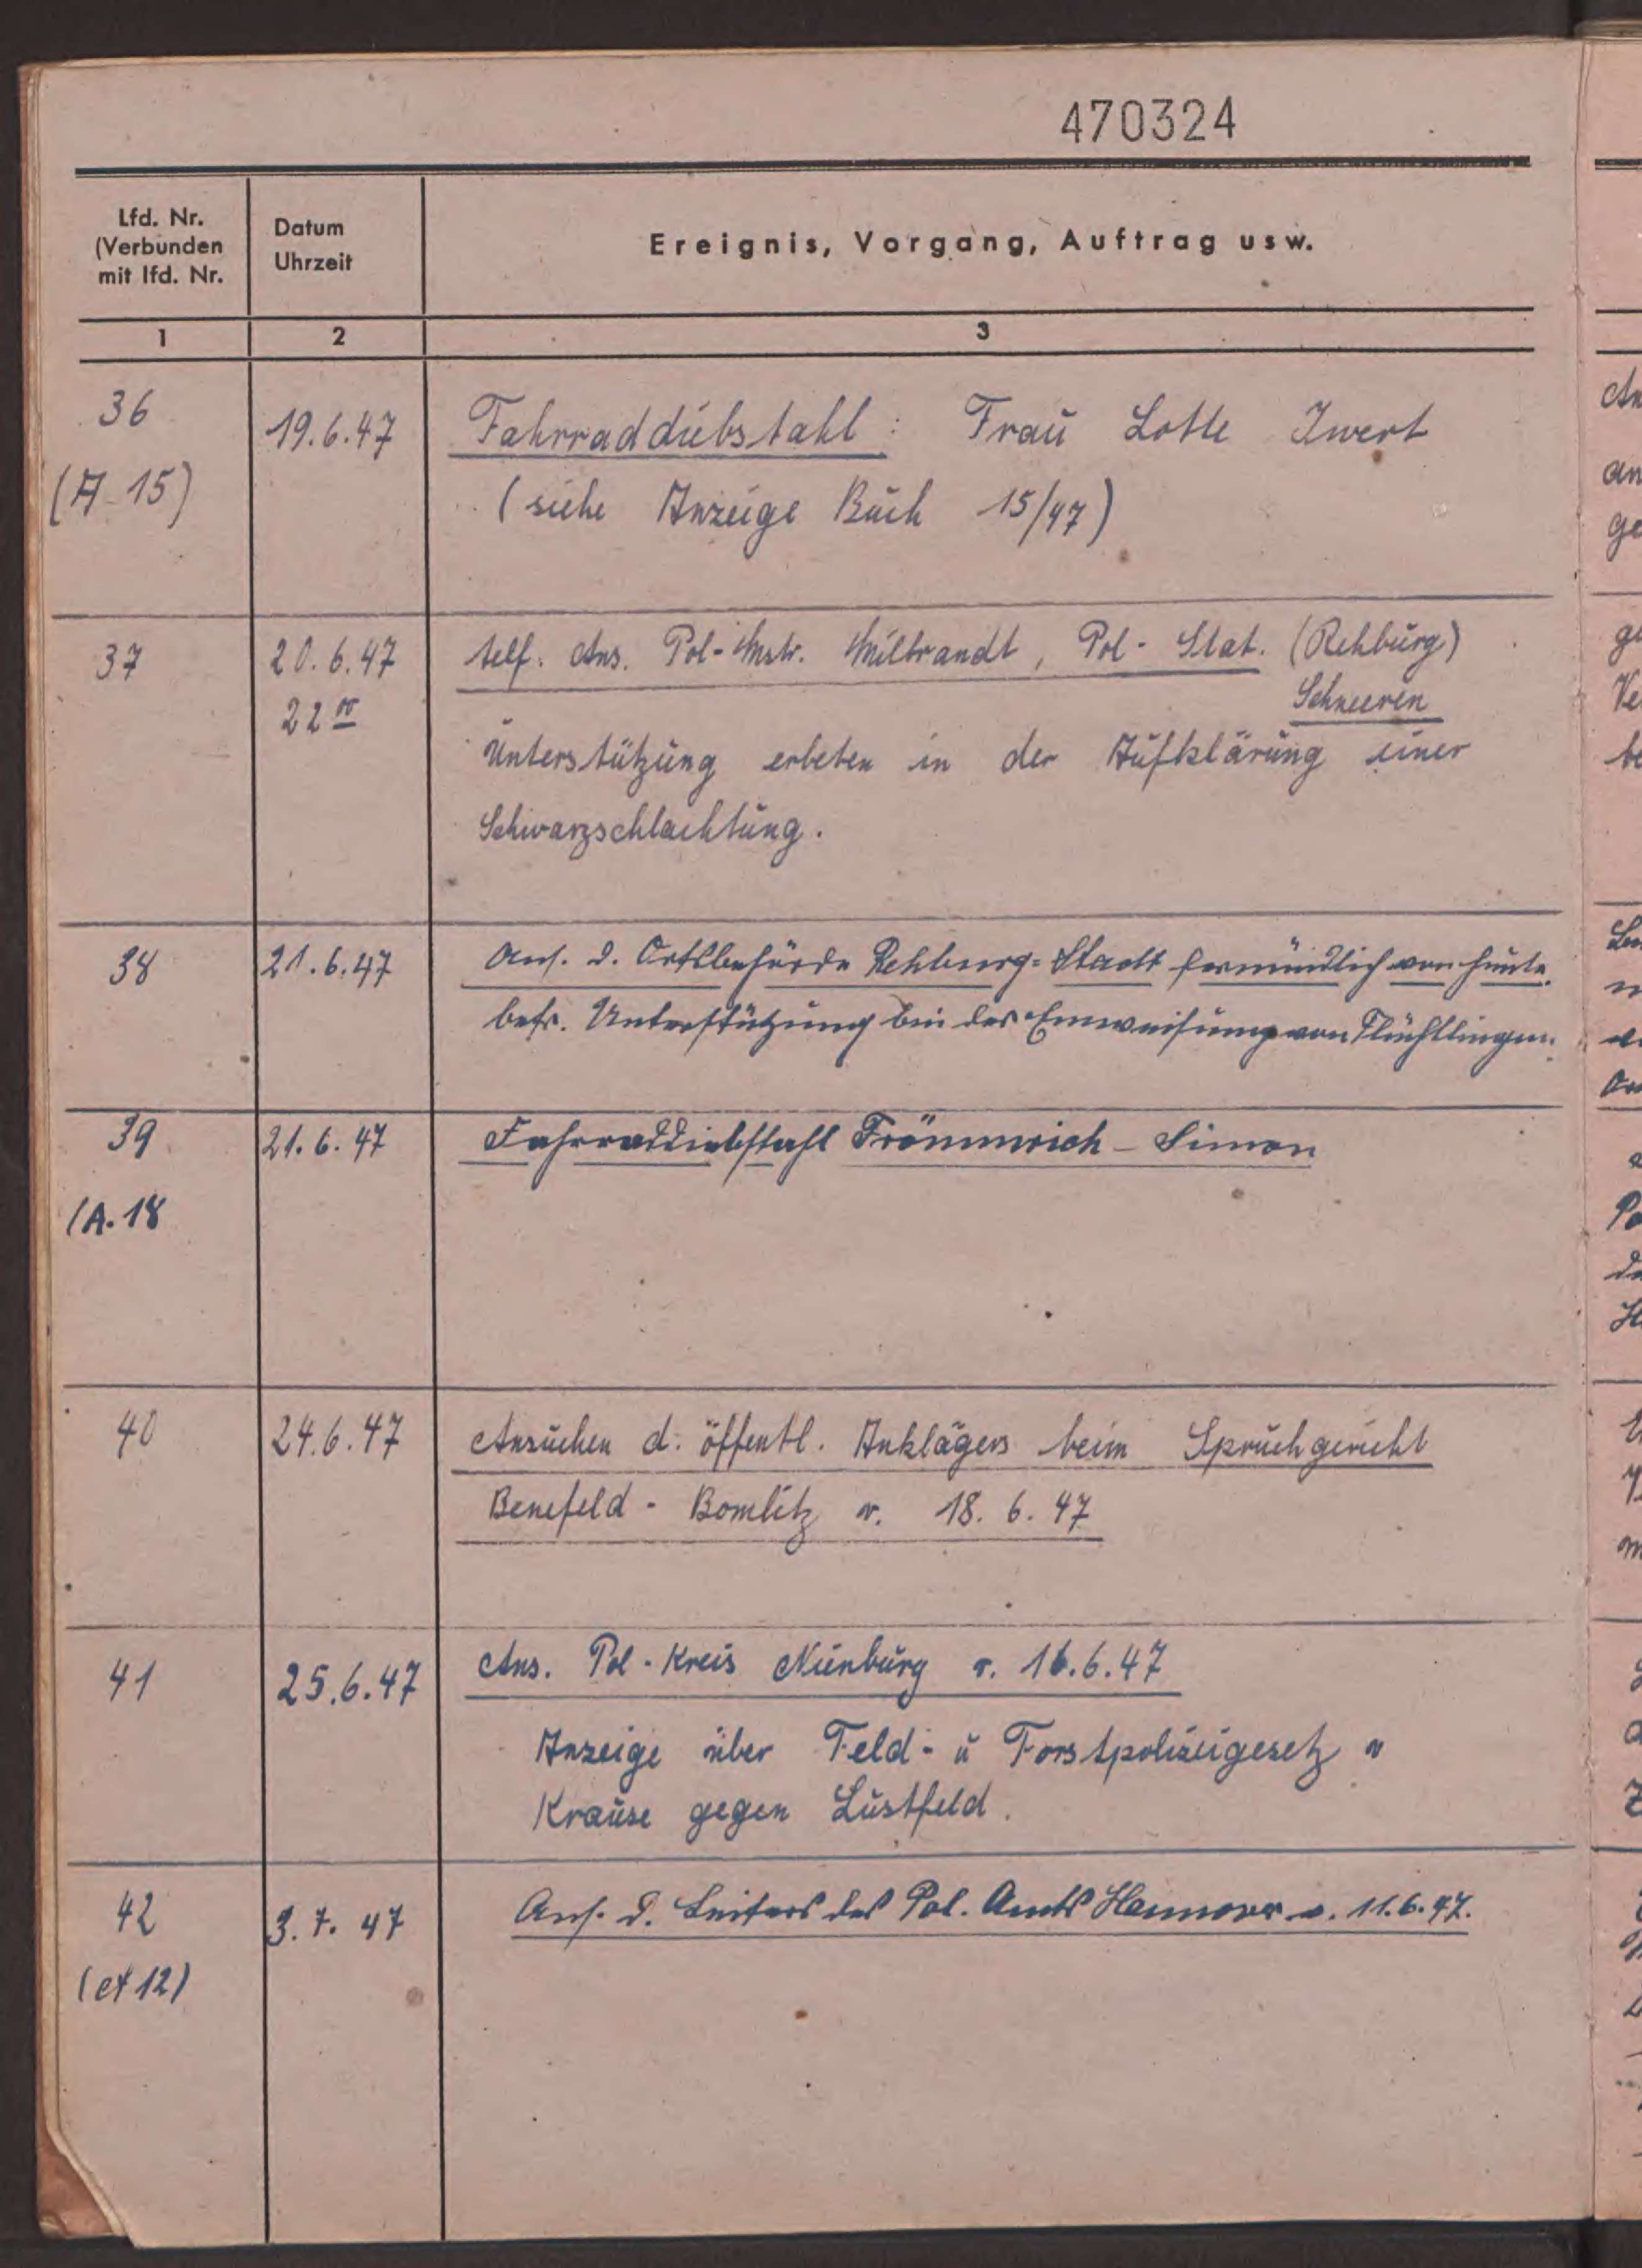 470324
Lfd. Nr.
(Verbunden
mit lfd. Nr.
Datum
Uhrzeit
Ereignis, Vorgang, Auftrag usw.
1 2 3
36 19.6.47 Fahrraddiebstahl: Frau Lotte Iwert
(A-15) (siehe Anzeige Buch 15/47)
37 20.6.47 telf. Ans. Pol-Mstr. Milbrandt, Pol-Stat. (Rehburg)
22 00 Schneeren
Unterstützung erbeten in der Aufklärung einer
Schwarzschlachtung.
38 21.6.47 Ans. d. Ortsbehörde Rehburg-Stadt fermündlich von heute.
betr. Unterstützung bei der Einweisung von Flüchtlingen.
39 21.6.47 Fahrraddiebstahl Frömmrich - Simon
(A. 18
40 24.6.47 Ansuchen d. öffentl. Anklägers beim Spruchgericht
Benefeld - Bomlitz v. 18. 6. 47
41 25.6.47 Ans. Pol-Kreis Nienburg v. 16.6.47
Anzeige über Feld- u Forstpolizeigesetz v
Krause gegen Lustfeld.
42 3.7.47 Ans. d. Leiters des Pol. Amts Hannover v. 11.6.47.
(A 12)